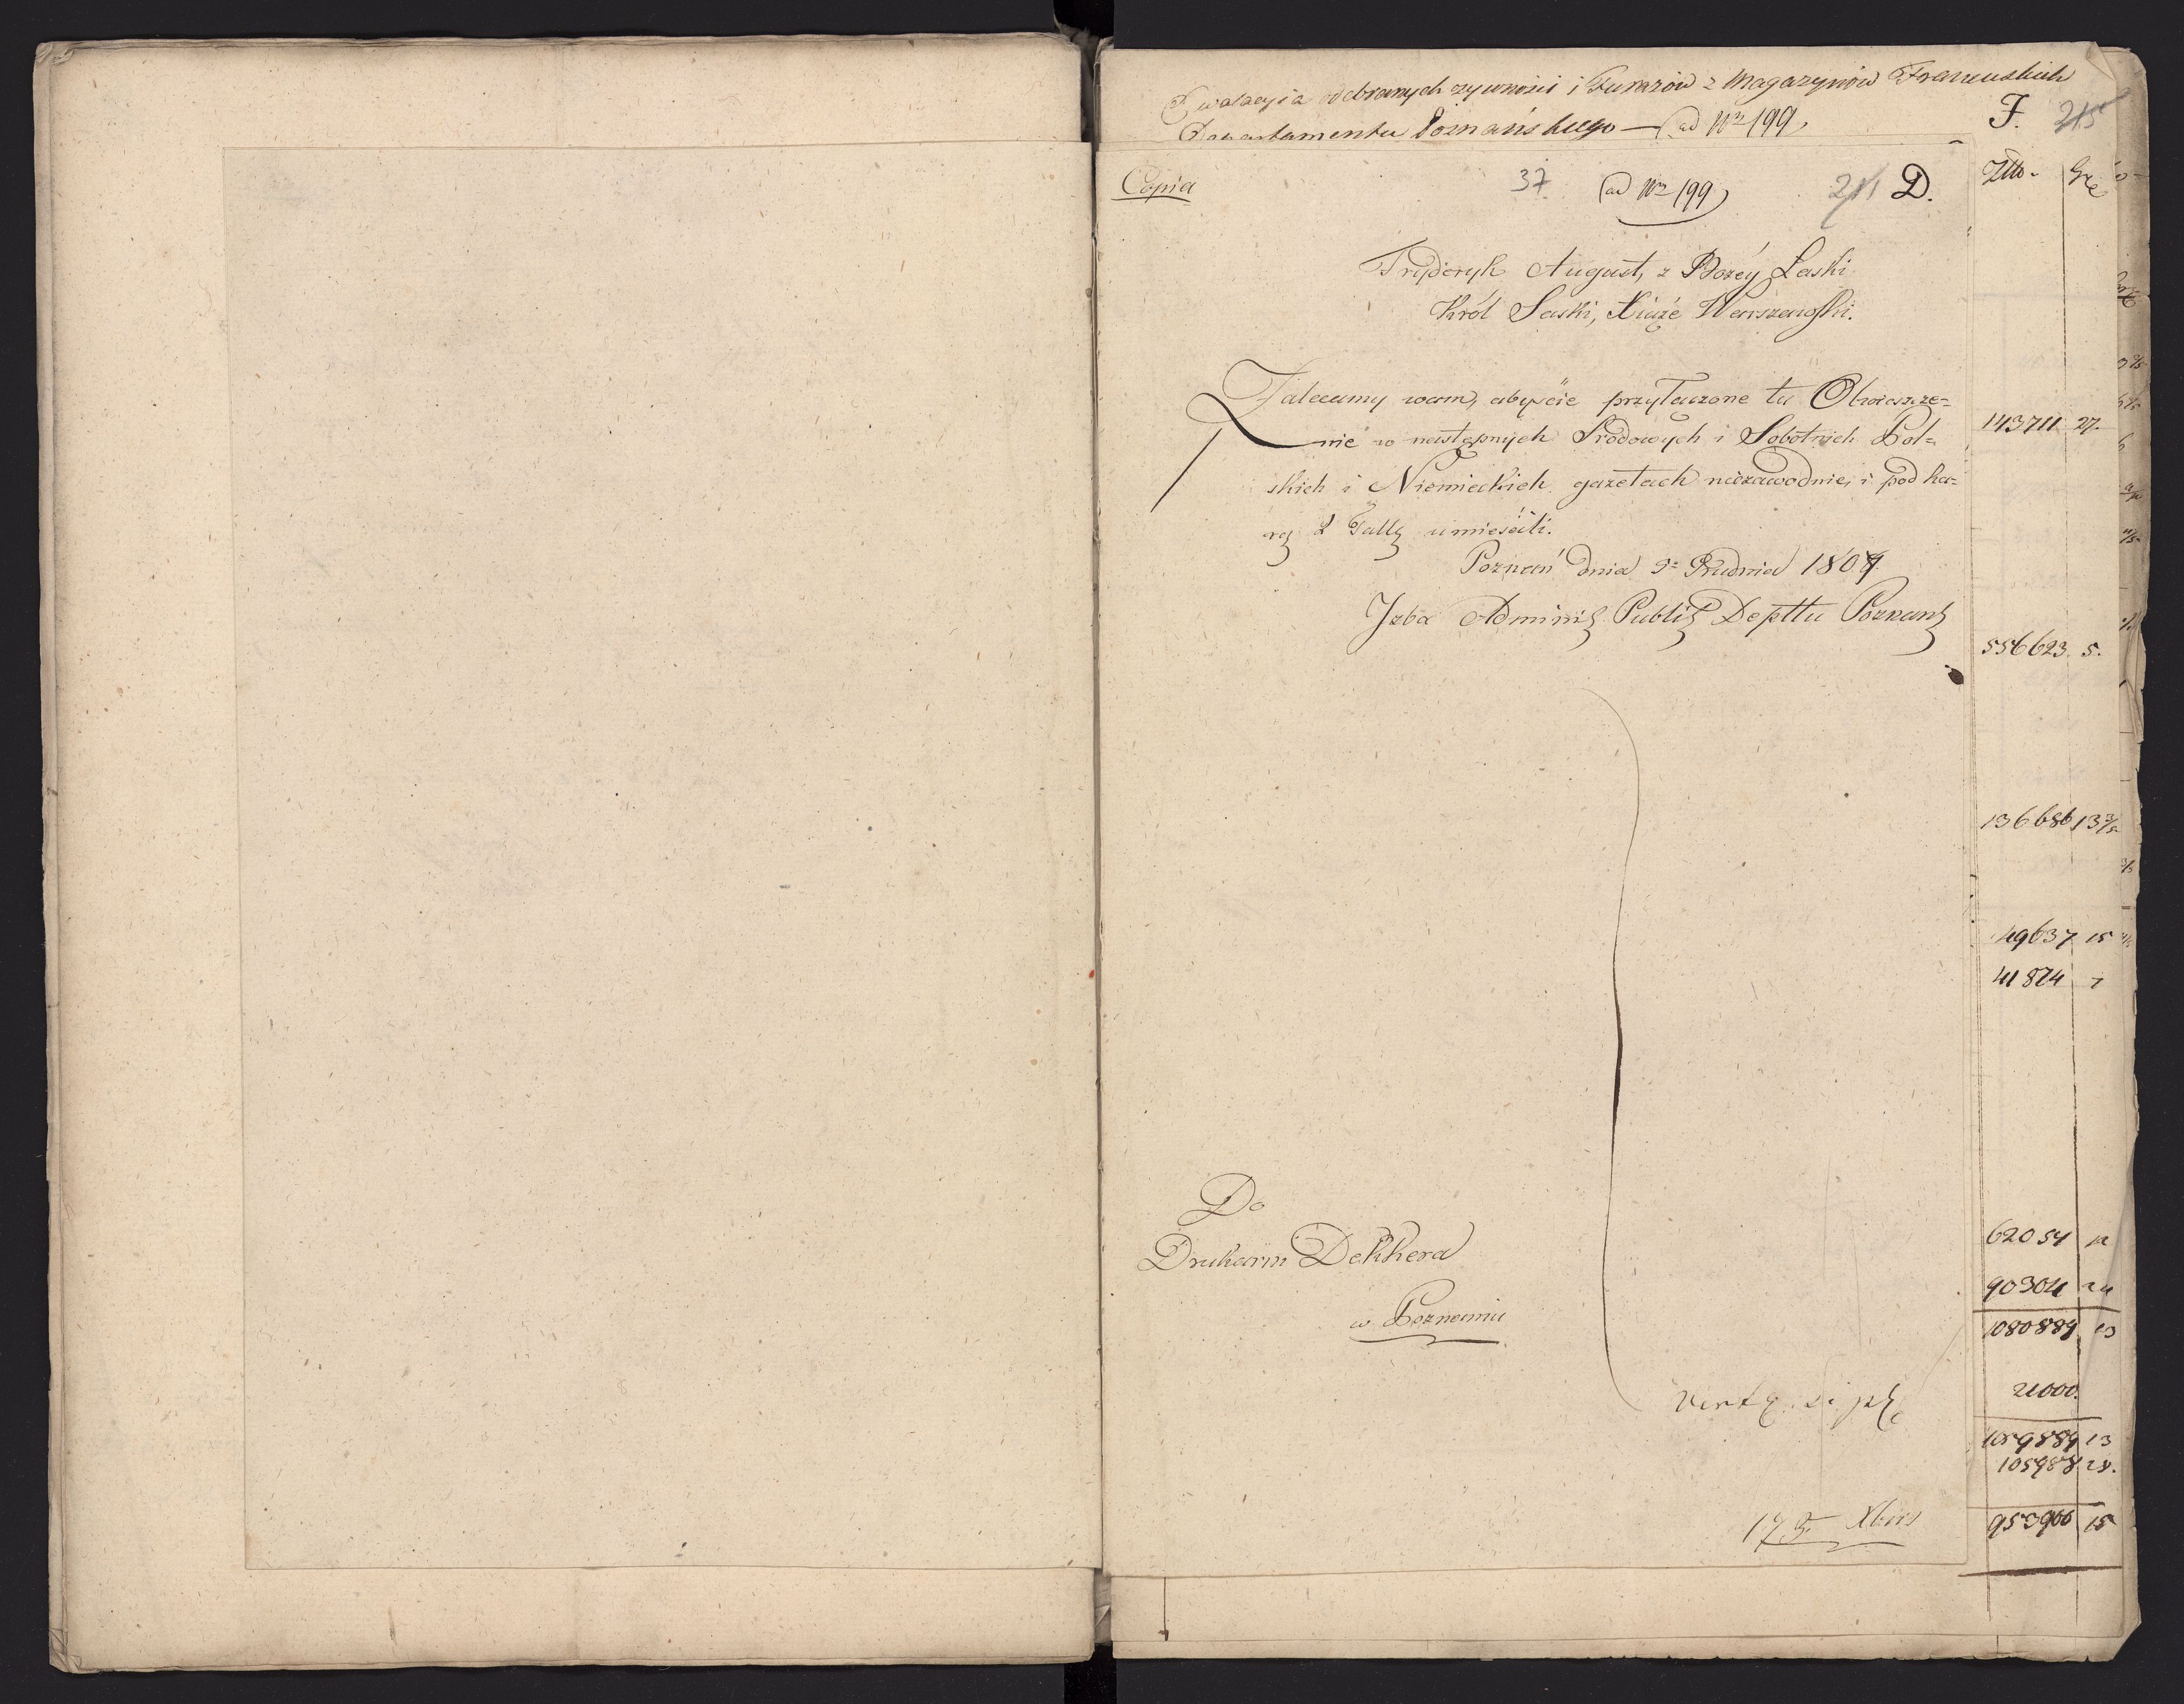 Ewalacyia odebranych zywnosci i Furazów z Magazynów Francuskich
Departamentu Poznańskiego — ad Nro 199.
F. 215
Copia
37
ad Nro 199
211 D.
Fryderyk August, z Bożéy Łaski
Król Saski, Xiąże Warszawski.
Zalecamy wam, abyście przyłączone tu Obwieszcze=
nie w następnych Srodowych i Sobotnich Pol=
skich i Niemieckich gazetach niezawodnie, i pod ka=
rą 2 Tall. umieścili.
Poznań dnia 9 Grudnia 1807
Jzba Adminis Public Depttu Poznans
Do
Drukarni Dekkera
w Poznaniu
17 Xbris
Złto. Gr
143711 27.
556623. 5.
136686 13
49637 15
41824 7
62054
90304 24
1080889 13
21000.
1059889 13
105988 28.
953900 15